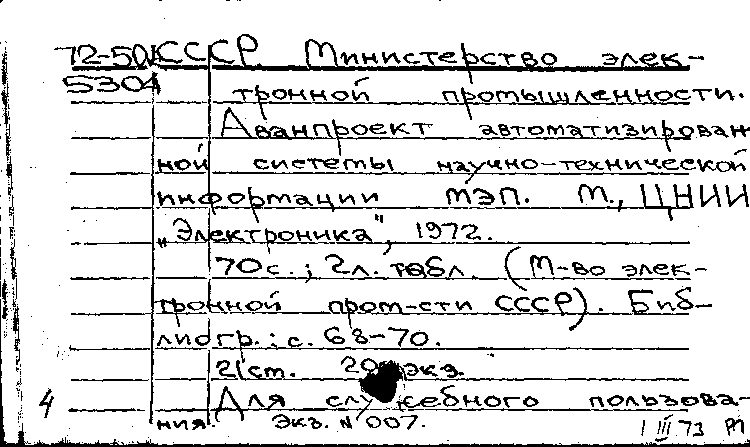 72-50 СССР. Министерство элек-
5304 тронной промышленности.
Аванпроект автоматизирован
ной системы научно-технической
информации МЭП. М., ЦНИИ
„Электроника", 1972.
70с.; 2л. табл. (М-во элек-
тронной пром-сти СССР). Биб-
лиогр.: с. 68-70.
21ст. экз.
4 Для служебного пользова-
ния. Экз. № 007. 1 III 73